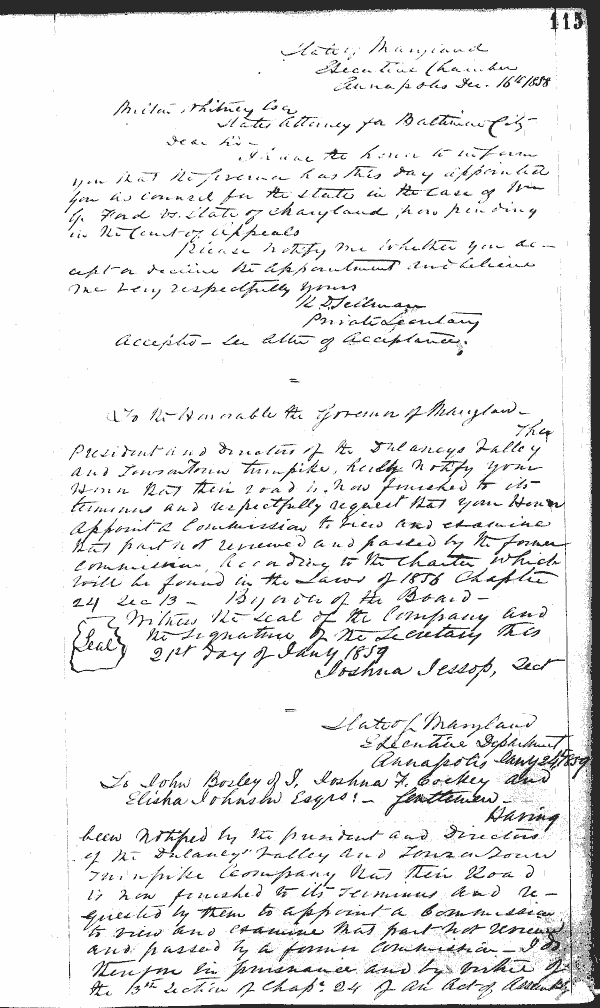 115
State of Maryland
Executive Chamber
Annapolis Dec. 16th 1858
Milton Whitney Esq
States Attorney for Baltimore City
Dear Sir -
I have the honor to inform
you that the Governor has this day appointed
you as counsel for the State in the case of Wm
G. Ford vs. State of Maryland, now pending
in the Court of Appeals
Please notify me whether you ac-
cept or decline the appointment and believe
me very respectfully yours
R D Sellman
Private Secretary
Accepted - See letter of acceptance.
To the Honorable the Governor of Maryland -
The
President and Directors of the Dulaneys Valley
and Towsontown turnpike, hereby notify your
Honor that their road is now finished to its
terminus and respectfully request that your Honor
appoint a Commission to view and examine
that part not reviewed and passed by the former
commission, according to the charter which
will be found in the Laws of 1856 Chapter
24 Sec 13 - By order of the Board -
Witness the Seal of the Company and
Seal
the signature of the Secretary this
21st day of Jany 1859
Joshua Jessop, Sect
State of Maryland
Executive Department
Annapolis Jany 24th 1859
To John Bosley of J, Joshua F. Cockey and
Elisha Johnson Esqrs: - Gentlemen -
Having
been notified by the president and Directors
of the Dulaney's Valley and Towson Town
Turnpike Company that their Road
is now finished to its terminus and re-
quested by them to appoint a Commission
to view and examine that part not reviewed
and passed by a former Commission - I do
therefore in pursuance and by virtue of
the 13th Section of Chapr 24 of an Act of Assembly